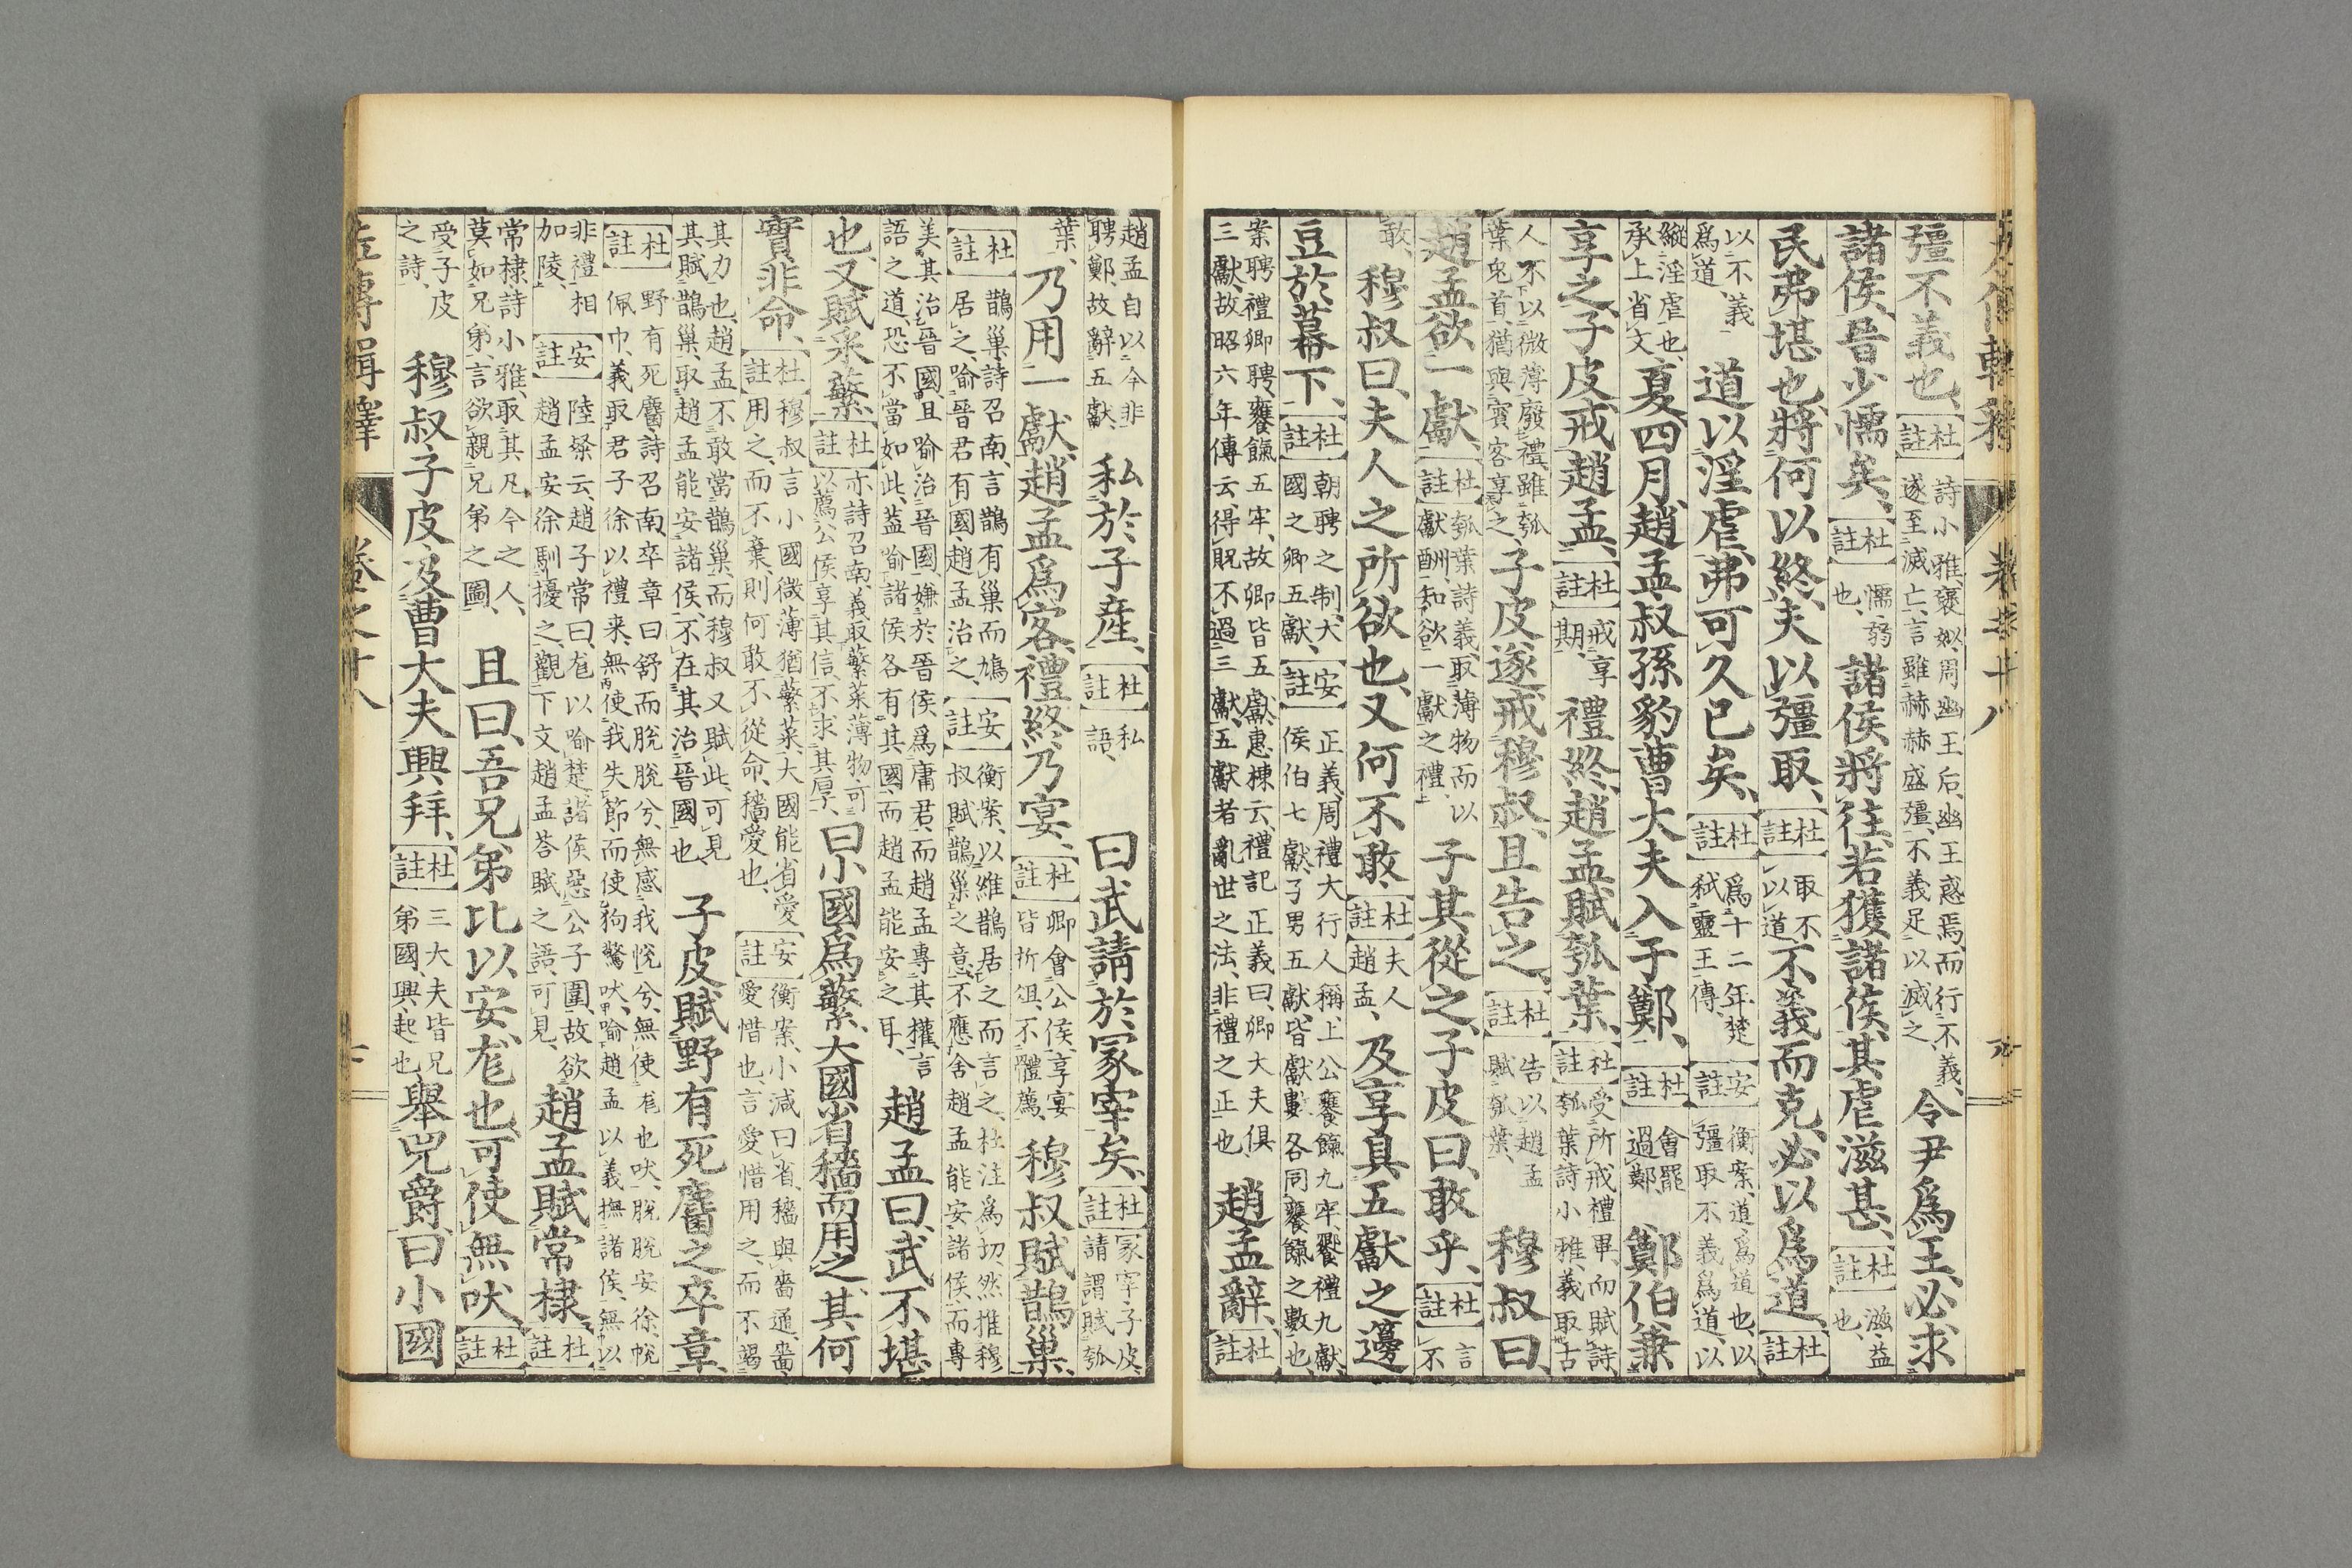 左傳輯釋 卷之十八 九
彊不義也、杜註詩小雅、褒姒、周幽王后、幽王惑焉、而行不義、遂至滅亡、言雖赫赫盛彊、不義足以滅之、令尹爲王、必求
諸侯、晉少懦矣、杜註懦、弱也、諸侯將往、若獲諸侯、其虐滋甚、杜註滋、益也、
民弗堪也、將何以終、夫以彊取、杜註取不以道、不義而克、必以爲道、杜註
以不義爲道、道以淫虐、弗可久已矣、杜註爲十二年楚弒靈王傳、安註衡案、道爲道也、以彊取不義爲道、以
縱淫虐也、承上省文、夏四月、趙孟叔孫豹曹大夫入于鄭、杜註會罷過鄭、鄭伯兼
享之、子皮戒趙孟、杜註戒享期、禮終、趙孟賦瓠葉、杜註受所戒禮畢、而賦詩、瓠葉詩小雅、義取古
人不以微薄廢禮、雖瓠葉兔首、猶與賓客享之、子皮遂戒穆叔、且告之、杜註告以趙孟賦瓠葉、穆叔曰、
趙孟欲一獻、杜註瓠葉詩義、取薄物而以獻酬、知欲一獻之禮、子其從之、子皮曰、敢乎、杜註言不
敢、穆叔曰、夫人之所欲也、又何不敢、杜註夫人趙孟、及享具五獻之籩
豆於幕下、杜註朝聘之制、大國之卿五獻、安註正義、周禮大行人稱、上公饔餼九牢、饗禮九獻、侯伯七獻、子男五獻、皆獻數各同饔餼之數也、
案聘禮卿聘、饔餼五牢、故卿皆五獻、惠棟云、禮記正義曰、卿大夫俱三獻、故昭六年傳云、得貺不過三獻、五獻者亂世之法、非禮之正也、趙孟辭、杜註
趙孟自以今非聘鄭、故辭五獻、私於子產、杜註私語、曰武請於冢宰矣、杜註冢宰子皮、請謂賦瓠
葉、乃用一獻、趙孟爲客、禮終乃宴、杜註卿會公侯、享宴皆折俎、不體薦、穆叔賦鵲巢、
杜註鵲巢、詩召南、言鵲有巢而鳩居之、喩晉君有國、趙孟治之、安註衡案、以維鵲居之而言之、杜注爲切、然推穆叔賦鵲巢之意、不應舍趙孟能安諸侯、而專
美其治晉國、且喩治晉國、嫌於晉侯爲庸君、而趙孟專其權、言語之道、恐不當如此、蓋喩諸侯各有其國、而趙孟能安之耳、趙孟曰、武不堪
也、又賦采蘩、杜註亦詩召南、義取蘩菜薄物、可以薦公侯、享其信、不求其厚、曰小國爲蘩、大國省穡而用之、其何
實非命、杜註穆叔言小國微薄猶蘩菜、大國能省愛用之、而不棄、則何敢不從命、穡愛也、安註衡案、小減曰省、穡與嗇通、嗇、愛惜也、言愛惜用之、而不竭
其力也、趙孟不敢當鵲巢、而穆叔又賦此、可見其賦鵲巢、取趙孟能安諸侯、不在其治晉國也、子皮賦野有死麕之卒章、
杜註野有死麕、詩召南、卒章曰、舒而脫脫兮、無感我帨兮、無使尨也吠、脫脫安徐、帨佩巾、義取君子徐以禮來、無使我失節、而使狗驚吠、喩趙孟以義撫諸侯、無以
非禮相加陵、安註陸粲云、趙子常曰、尨以喩楚、諸侯惡公子圍、故欲趙孟安徐馴擾之、觀下文趙孟荅賦之語、可見、趙孟賦常棣、杜註
常棣、詩小雅、取其凡今之人、莫如兄弟、言欲親兄弟之國、且曰、吾兄弟比以安、尨也可使無吠、杜註
受子皮之詩、穆叔子皮及曹大夫興拜、杜註三大夫皆兄弟國、興、起也、舉兕爵曰、小國
左傳輯釋 卷之十八